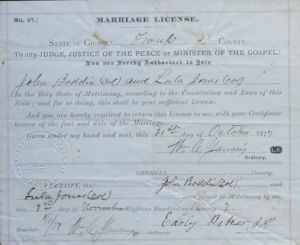 No. 37.) MARRIAGE LICENSE.
STATE OF GEORGIA, Troup COUNTY.
To any JUDGE, JUSTICE OF THE PEACE or MINISTER OF THE GOSPEL:
You are Hereby Authorized to Join
John Boddie (Col) and Lula Jones (Col)
In the Holy State of Matrimony, according to the Constitution and Laws of this
State; and for so doing, this shall be your sufficient License.
And you are hereby required to return this License to me, with your Certificate
hereon of the fact and date of the Marriage.
Given under my hand and seal, this 31st day of October 187
Wm C L.S.
Ordinary.
GEORGIA, County:
I CERTIFY, that John Boddie (Col) and
Lula Jones (Col) were joined in Matrimony by me
this 3rd day of November Eighteen Hundred and Seventy
Wm C Early J.P.
Ordinary